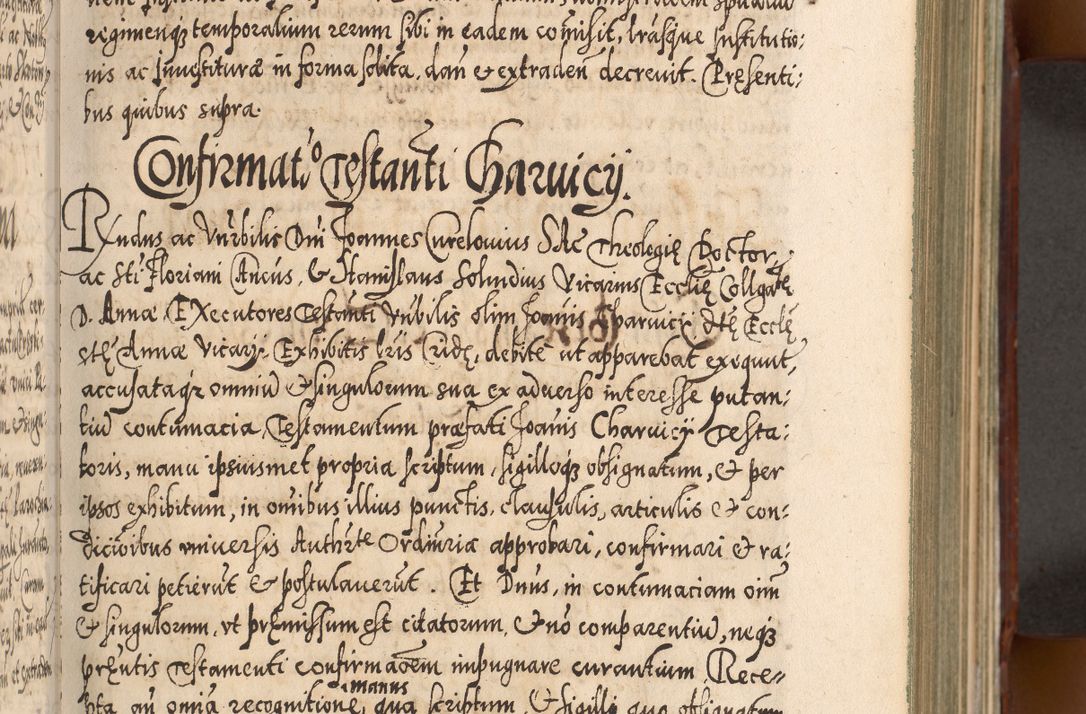 regimenq₃ temporalium rerum sibi in eadem comisit, lrasque Institutio:
nis ac Inuestituræ in forma solita, dan̄ & extraden̄ decreuit. Presenti:
bus quibus supra.
Confirmat:º Testanti Charuicij.
Rndus ac Vnrbilis Dni Joannes Curelouius SAe Theologię Doctor
ac Sti Floriani Ancus, & Stanislaus Solundius Vicarius Eccłię Collgatę
D. Annæ, EXecutores Testanti Vnbilis olim Joanis Charuicij dtę Eccłę
stę Annæ Vicarij. Exhibitis lris Cridę, debite ut apparebat exequut,
accusataq₃ omniū & singulorum sua ex aduerso interesse putan:
tiū contumacia, Testamentum præfati Joanis Charuicij Testa:
toris, manu ipsiusmet propria scriptum, sigilloq₃ obsignatum, & per
ipsos exhibitum, in omibus illius punctis, clausulis, articulis & con:
dicioibus uniuersis Authrte Ordinria approbari, confirmari & ra:
tificari petierūt & postulauerūt. Et Dnus, in contumaciam oiū
& singulorum, vt præmissum est citatorum, & nō comparentiū, neq₃
prntis Testamenti confirmaōem inpugnare curantium, Rece=
pta an̄ omīa recognitione, manus qua scriptum, & sigilli quo obsignatum